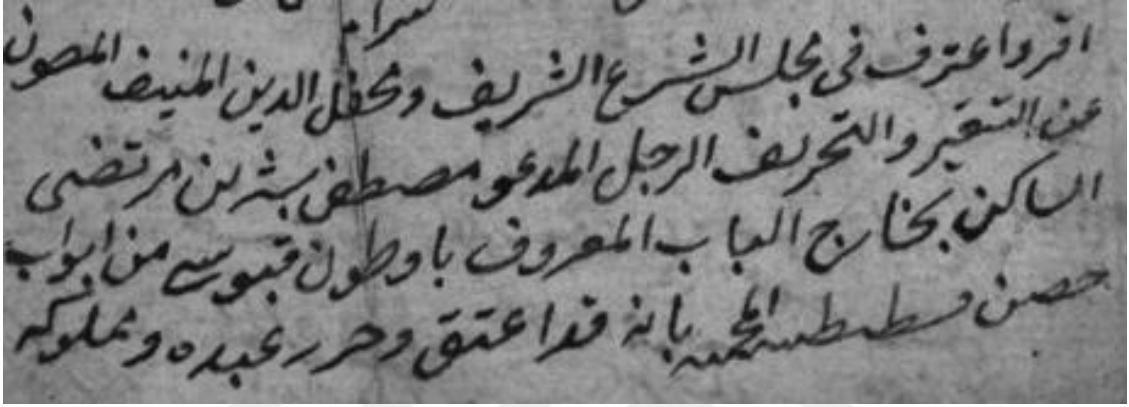 اقر واعترف فى مجلس الشرع الشريف ومحفل الدين المنيف المصون
عن التغير والتحريف الرجل المدعو مصطفى بشه بن مرتضى
الساكن بخارج الباب المعروف باوطون قپوسى من ابواب
حصن قسطنطنيه المحميه بانه قد اعتق وحرر عبده ومملوكه